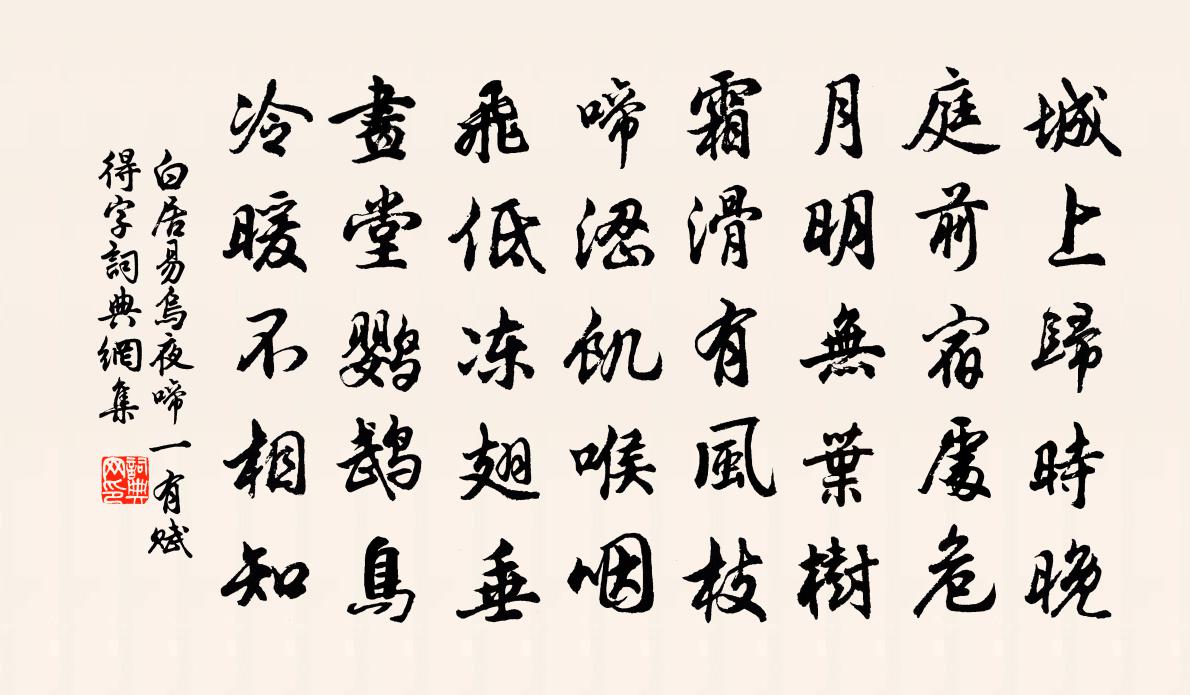 城上歸時晚
庭前宿處危
月明無葉樹
霜滑有風枝
啼澀飢喉咽
飛低凍翅垂
畫堂鸚鵡鳥
冷暖不相知
白居易烏夜啼一有賦
得字詞典網集
詞典网印